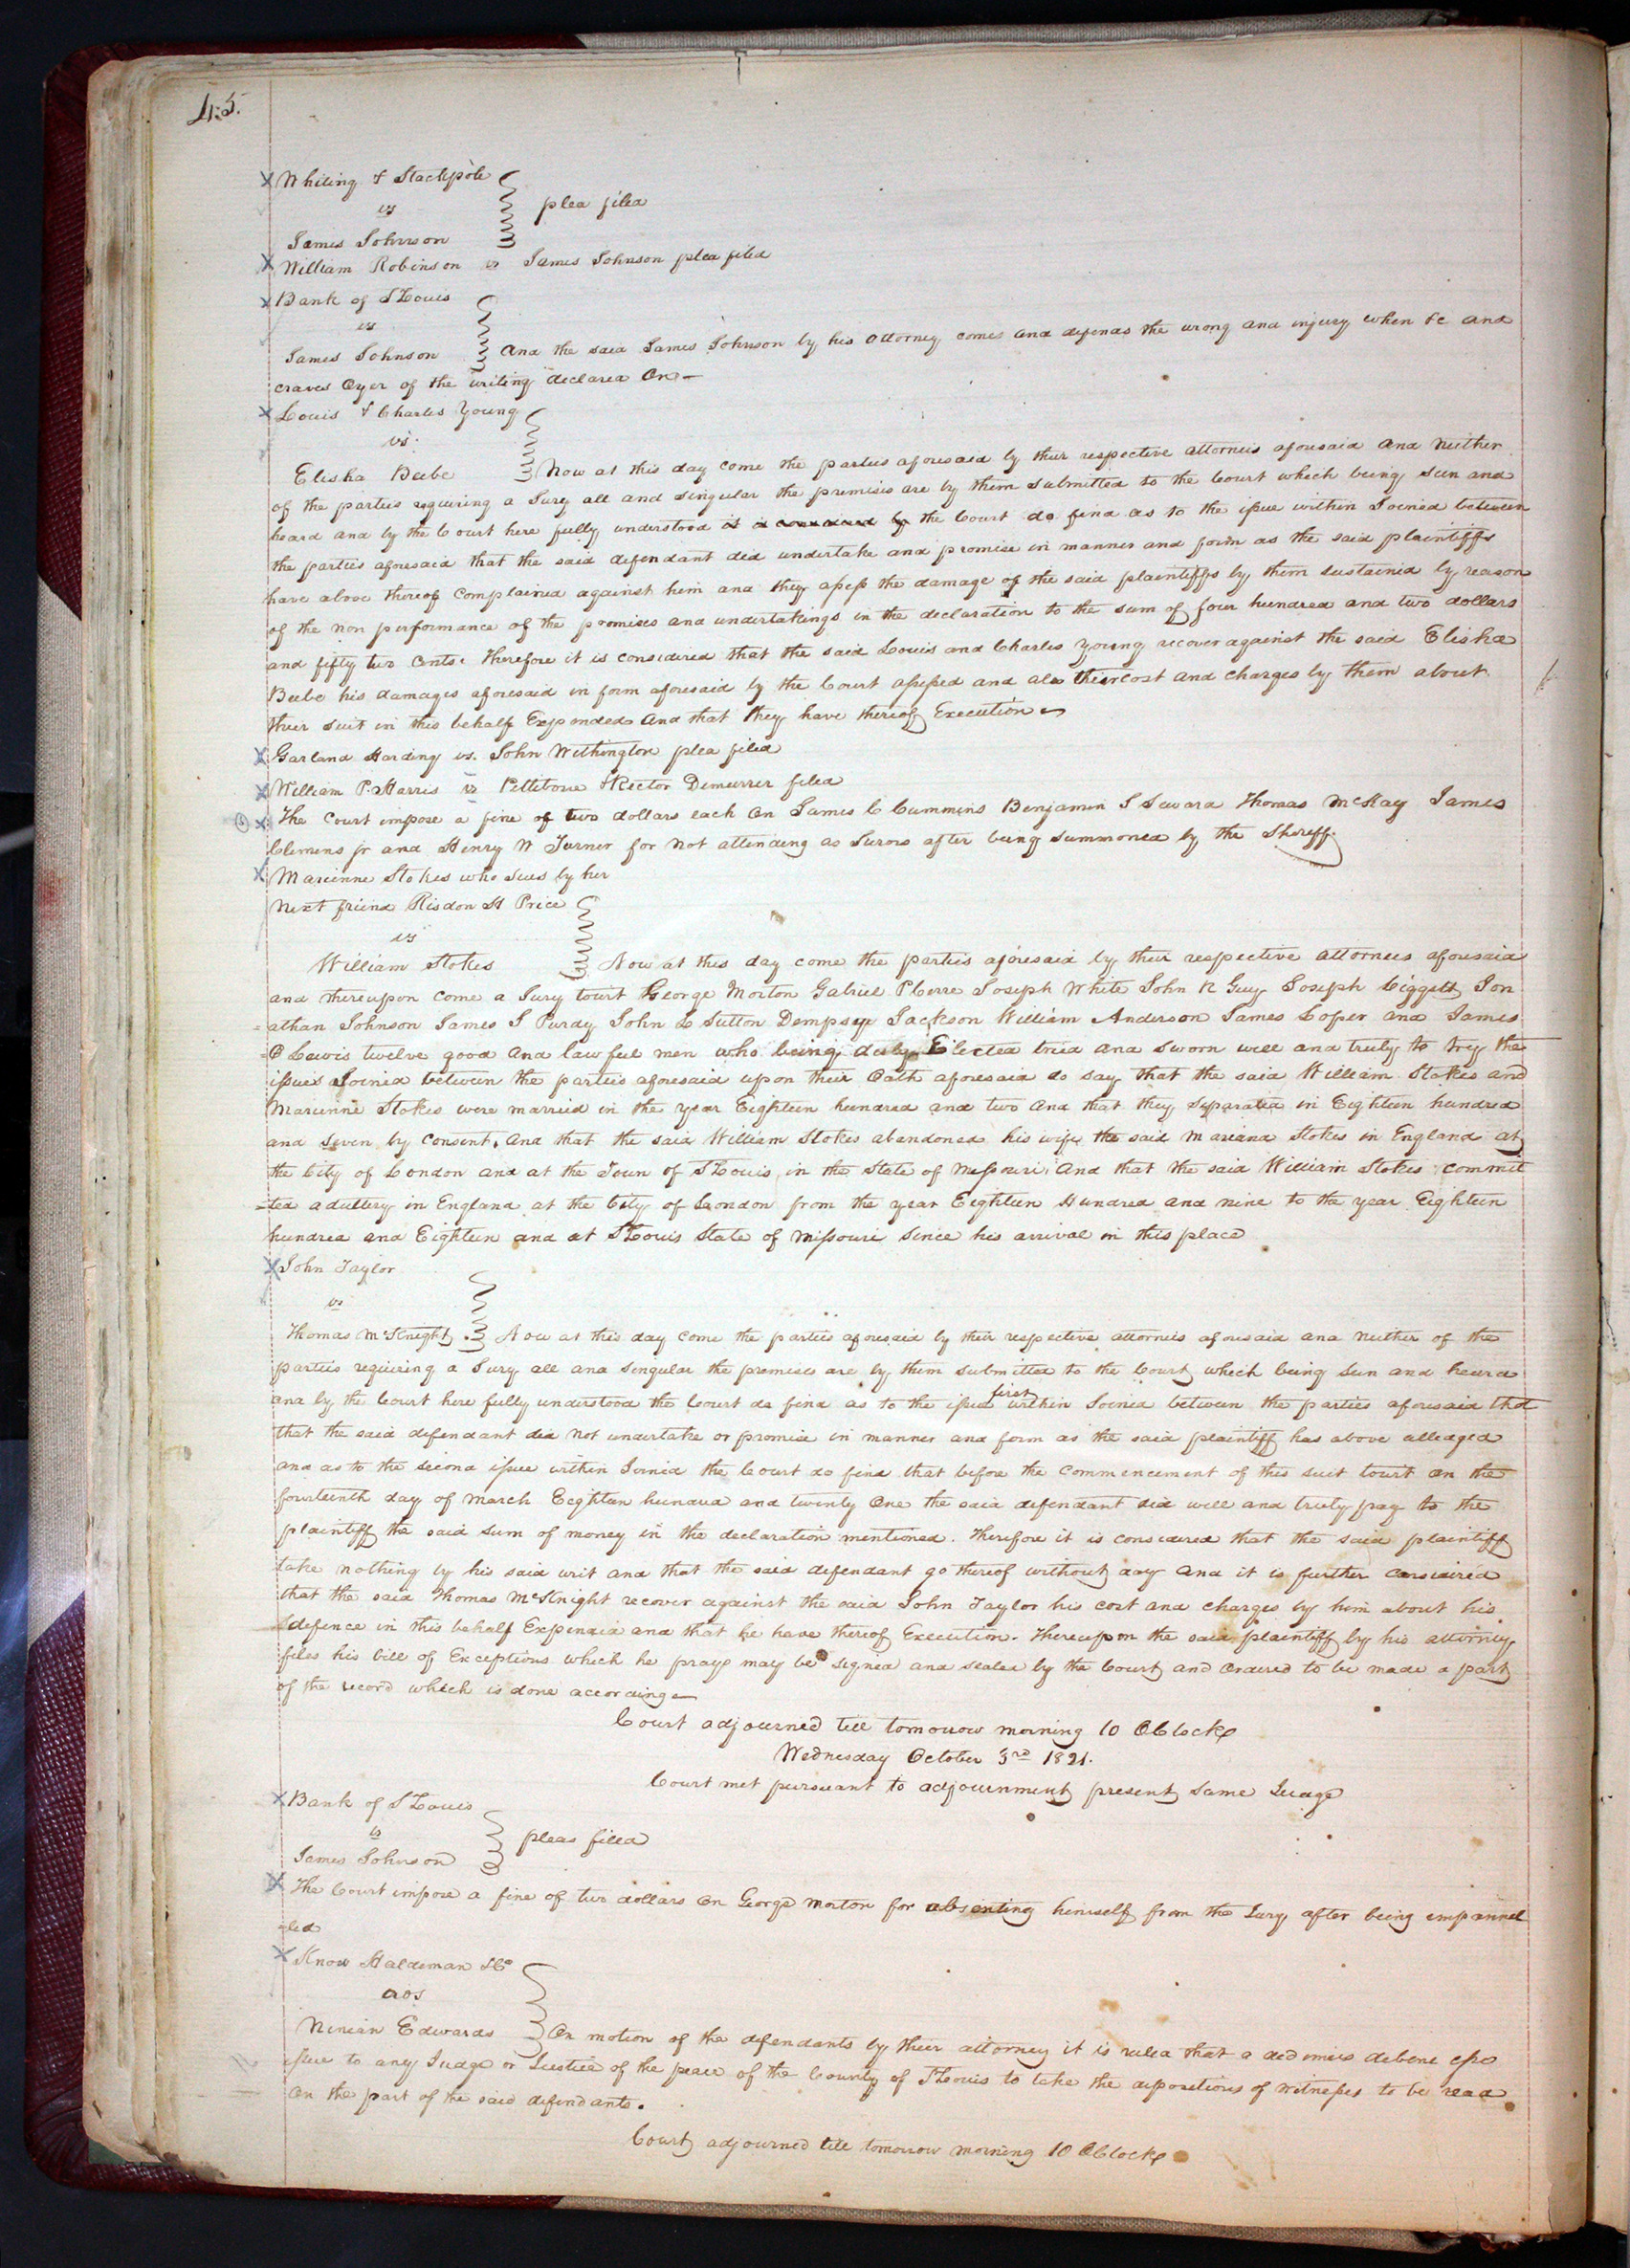 45.
Whiting & Stackpole
vs
plea filed
James Johnson
William Robinson vs James Johnson plea filed
Bank of St Louis
vs
James Johnson And the said James Johnson by his attorney comes and defends the wrong and injury when &c and
craves Oyer of the writing declared On—
Louis & Charles Young
vs.
Elisha Beebe Now at this day come the parties aforesaid by their respective attornies aforesaid and neither
of the parties requiring a Jury all and singular the premises are by them submitted to the Court which being seen and
heard and by the Court here fully understood it is considered by the Court do find as to the issue within Joined between
the parties aforesaid that the said defendant did undertake and promise in manner and form as the said plaintiffs
have above thereof complained against him and they assess the damage of the said plaintiffs by them sustained by reason
of the non performance of the promises and undertakings in the declaration to the sum of four hundred and two dollars
and fifty two Cents. Therefore it is considered that the said Louis and Charles Young recover against the said Elisha
Beebe his damages aforesaid in form aforesaid by the Court assessed and also their cost and charges by them about
their suit in this behalf Expended and that they have thereof Execution
Garland Harding vs. John Wethington plea filed
William P. Harris vs Pettibone & Rector Demurrer filed
The Court impose a fine of two dollars each On James C Cummins Benjamin S Seward Thomas McKay James
Clemens jr and Henry W Turner for not attending as Jurors after being summoned by the Sheriff.
Marienne Stokes who sues by her
next friend Risdon H Price
vs
William Stokes Now at this day come the parties aforesaid by their respective attornees aforesaid
and thereupon come a Jury towit George Morton Gabriel Pierre Joseph White John R Guy Joseph Liggett Jon
athan Johnson James S Purdy John L Sutton Dempsey Jackson William Anderson James Loper and James
O Lewis twelve good and lawful men who being duly Elected tried and sworn well and truly to try the
issues Joined between the parties aforesaid upon their Oath aforesaid do say that the said William Stokes and
Marienne Stokes were married in the year Eighteen hundred and two and that they separated in Eighteen hundred
and seven by consent. And that the said William Stokes abandoned his wife the said Mariana Stokes in England at
the City of London and at the Town of St Louis in the State of Missouri. And that the said William Stokes commit
=ted adultery in England at the City of London from the year Eighteen Hundred and nine to the year Eighteen
hundred and Eighteen and at St Louis State of Missouri since his arrival in this place
John Taylor
vs
Thomas McKnight Now at this day come the parties aforesaid by their respective attornies aforesaid and neither of the
parties requiring a Jury all and singular the premises are by them submitted to the Court which being seen and heard
and by the Court here fully understood the Court do find as to the first issue within Joined between the parties aforesaid that
that the said defendant did not undertake or promise in manner and form as the said plaintiff has above alledged
and as to the second issue within Joined the Court do find that before the commencement of this suit towit on the
fourteenth day of March Eighteen hundred and twenty One the said defendant did well and truly pay to the
plaintiff the said sum of money in the declaration mentioned. Therefore it is considered that the said plaintiff
take nothing by his said writ and that the said defendant go thereof without day and it is further considered
that the said Thomas McKnight recover against the said John Taylor his cost and charges by him about his
defence in this behalf Expended and that he have thereof Execution. Thereupon the said plaintiff by his attorney
files his bill of Exceptions which he prays may be signed and sealed by the Court and Ordered to be made a part
of the record which is done accordingly
Court adjourned till tomorrow morning 10 OClock
Wednesday October 3rd 1821.
Court met pursuant to adjournment present same Judge
Bank of St Louis
vs
pleas filed
James Johnson
The Court impose a fine of two dollars On George Morton for absenting himself from the Jury after being empannel
=led
Knox Haldeman & Co
ads
Ninian Edwards On motion of the defendants by their attorney it is ruled that a dedimus debene esse
issue to any Judge or Justice of the peace of the County of St Louis to take the depositions of witnesses to be read
On the part of the said defendants.
Court adjourned till tomorrow morning 10 OClock